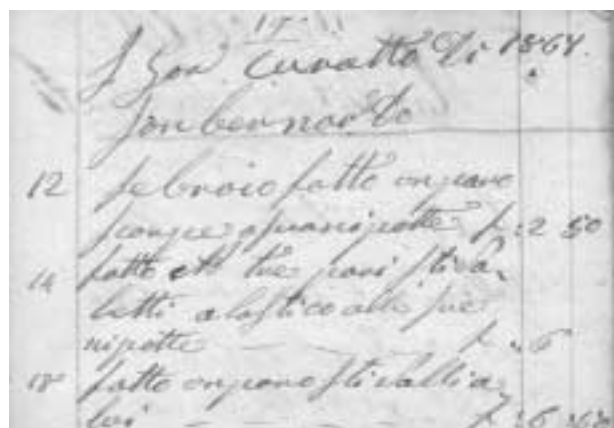 Zon Curatto Di 1864.
Son bernardo
12 febraio fatto on paro
scarpe a sua nipotte f: 2 50
14 fatto tre pari stiva
letti alastico alle sue
nipotte f: 6
18 fatto on paro stivalli a
loi f: 6: